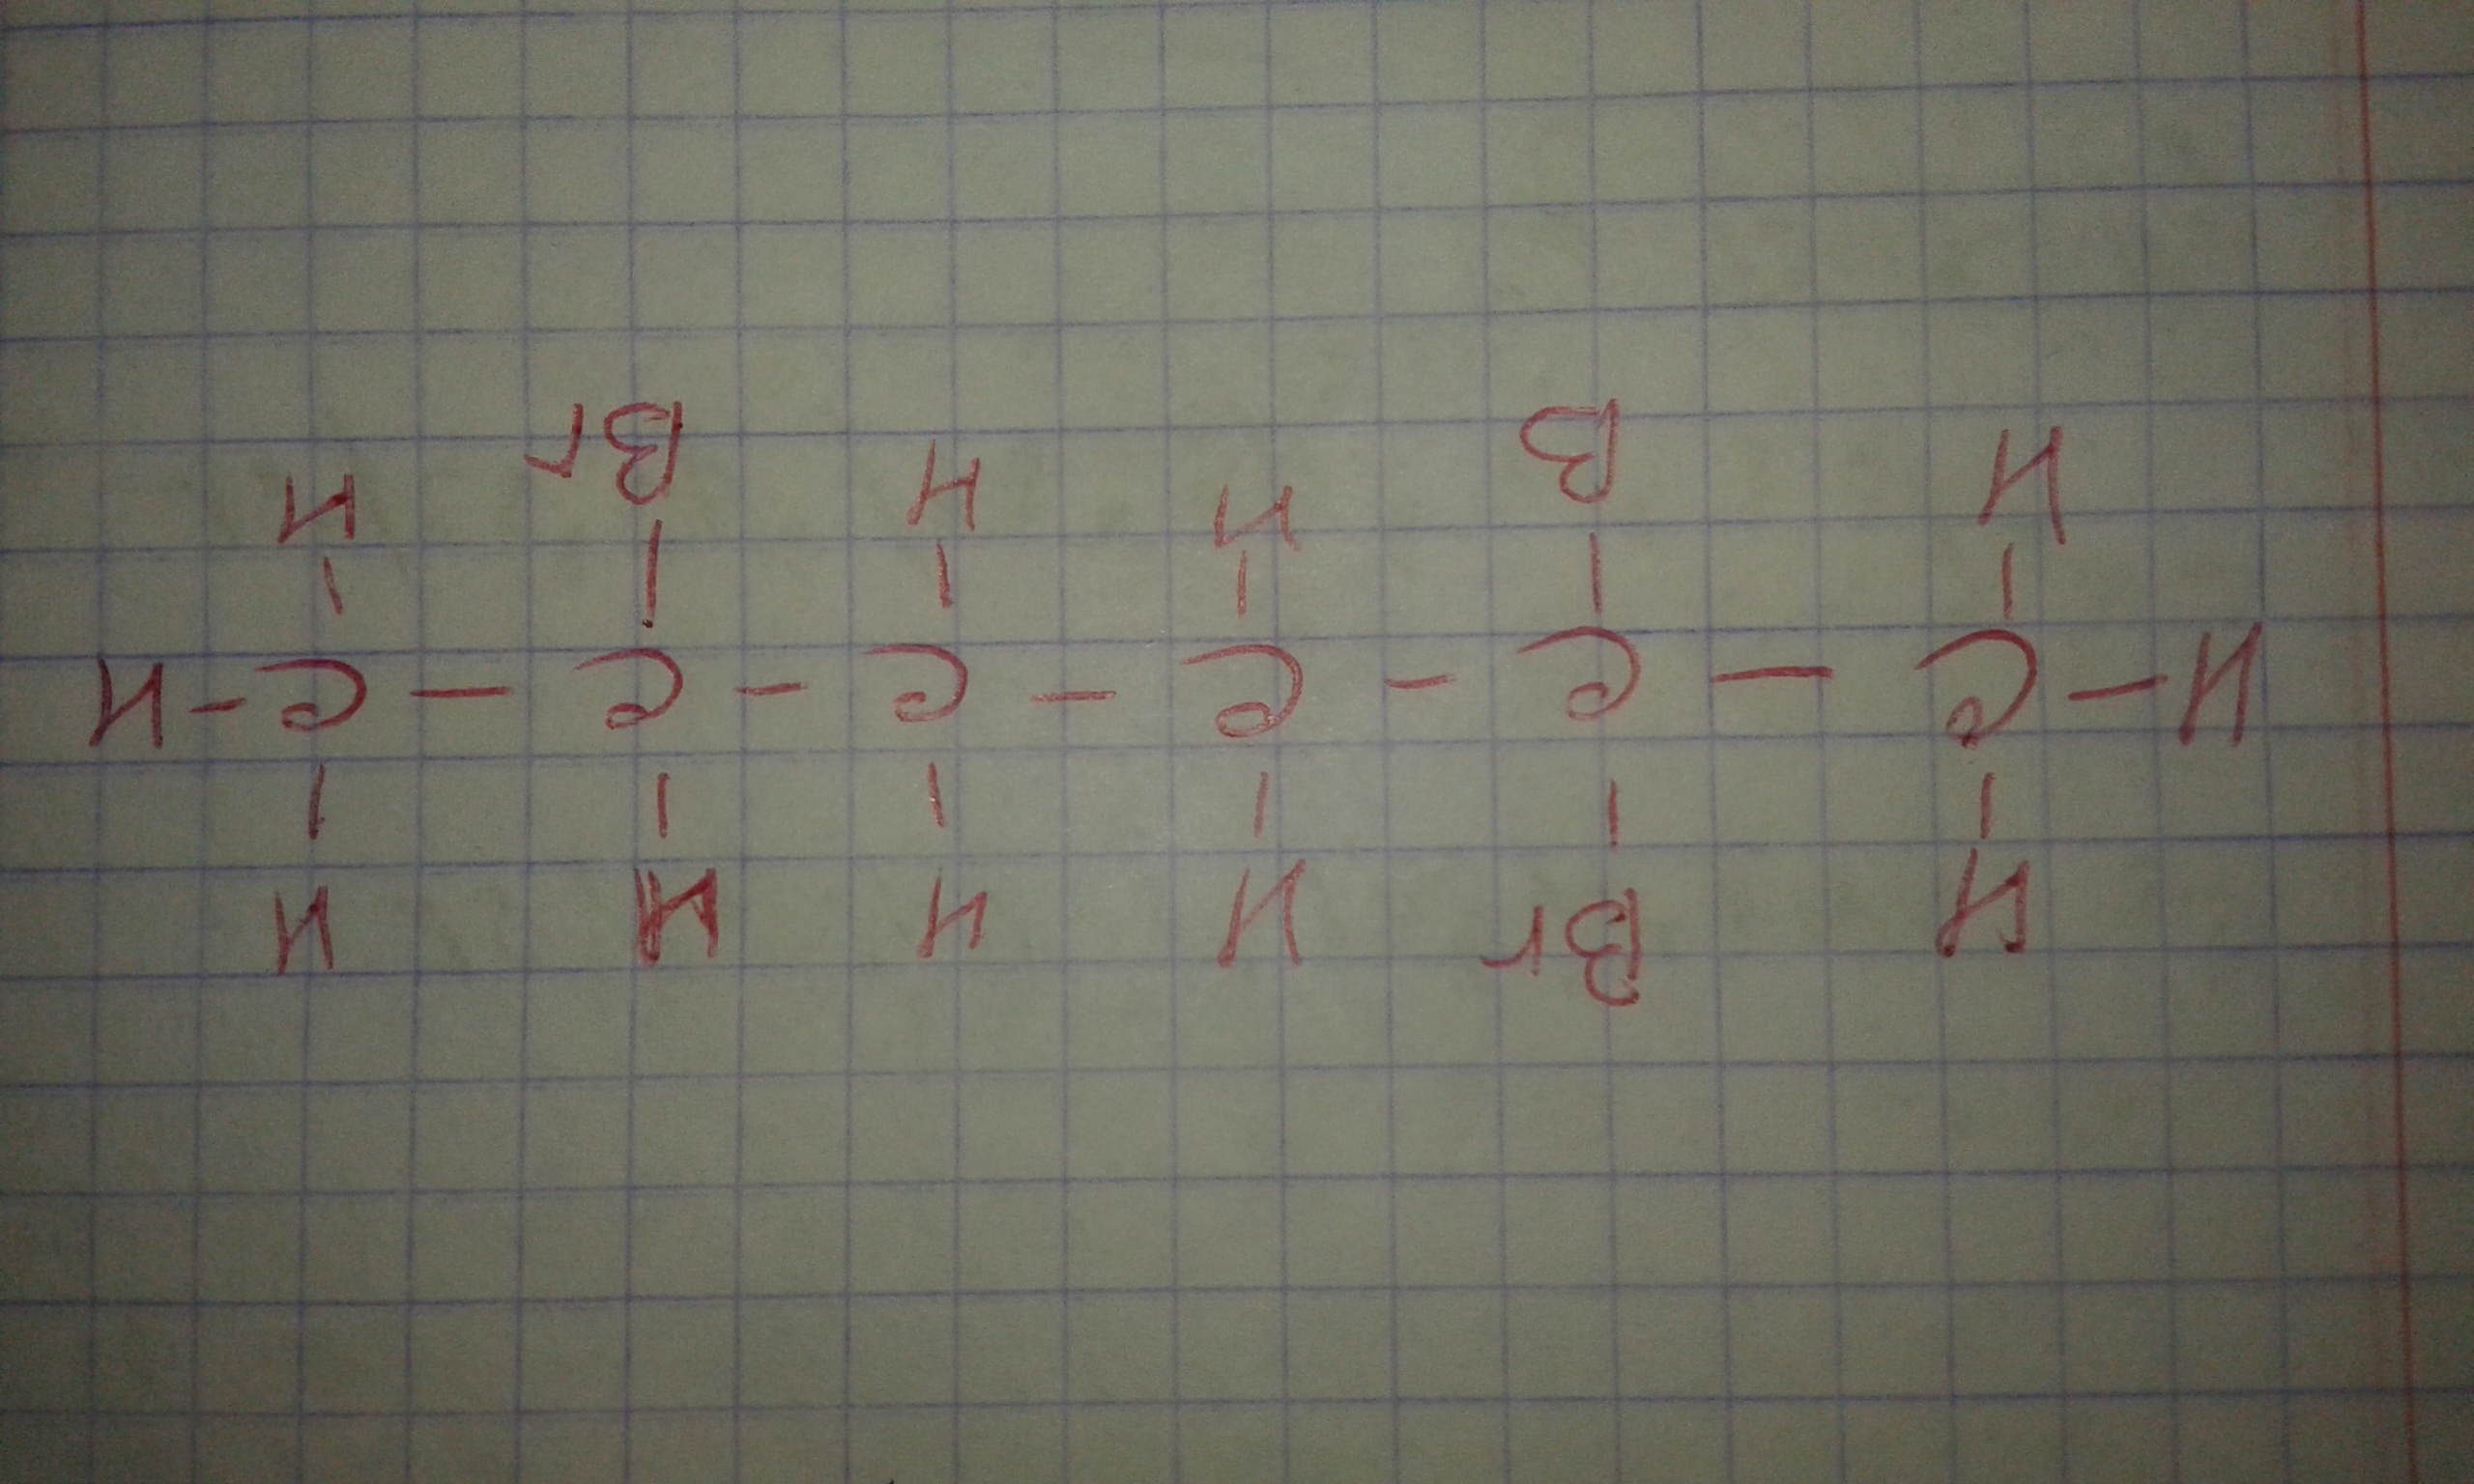 H Br H H H H
H - C - C - C - C - C - C - H
H B H H Br H